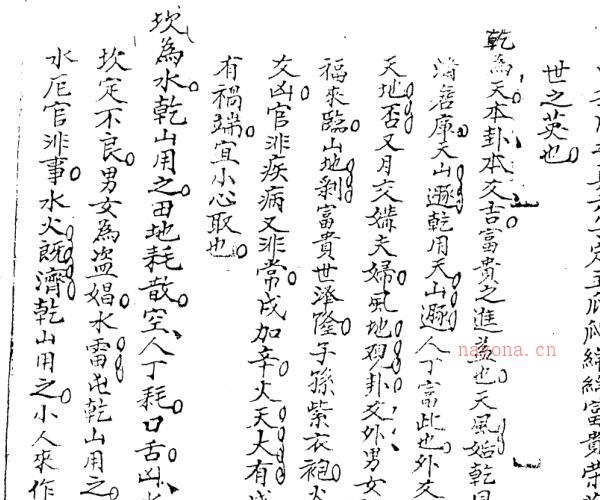 世之英也
乾為天本卦本爻吉富貴之進益也天風姤乾
庫天山遯乾用天山遯人丁富此也外爻
天地否又月交媾夫婦風地观卦交外男女
福來臨山地剝富貴世澤隆子孫紫衣袍火
爻凶官非疾病又非常戌加辛火天大有
有禍端宜小心取也
坎為水乾山用之田地耗散空人丁耗口舌凶
坎定不良男女為盜娼水雷屯乾山用之
水厄官非事水火既濟乾山用之小人來作
nayona.cn